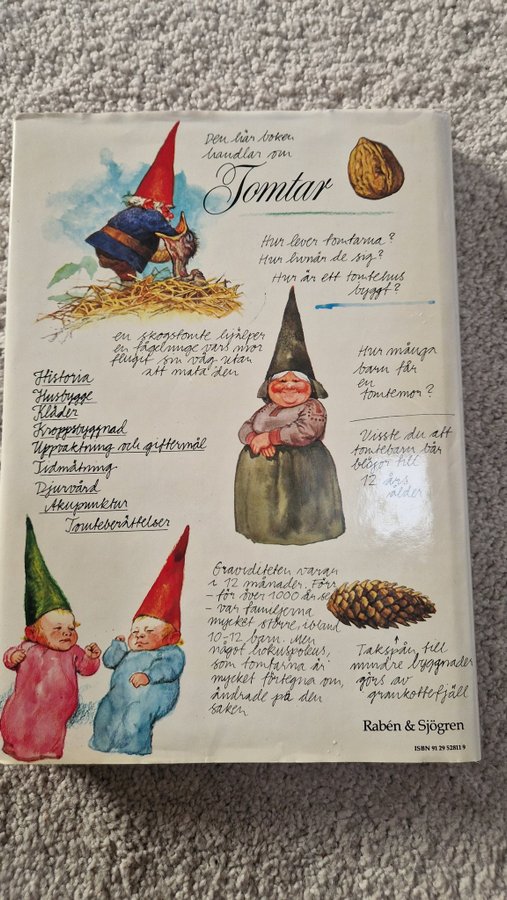 Den här boken
handlar om
Tomtar
Hur lever tomtarna?
Hur livnär de sig?
Hur är ett tomtehus
byggt?
en skogstomte hjälper
en fågelunge vars mor
flugit sin väg utan
att mata den
Hur många
barn får
en
tomtemor?
Historia
Husbygge
Kläder
Kroppsbyggnad
Uppvaktning och giftermål
Tidmätning
Djurvård
Akupunktur
Tomteberättelser
Visste du att
tomtebarn bär
blöjor till
12 års
ålder
Graviditeten varar
i 12 månader. Förr
- för över 1000 år sen
- var familjerna
mycket större, ibland
10-12 barn. Men
något hokuspokus,
som tomtarna är
mycket förtegna om,
ändrade på den
saken
Takspån till
mindre byggnader
görs av
grankottefjäll
Rabén & Sjögren
ISBN 91 29 52811 9